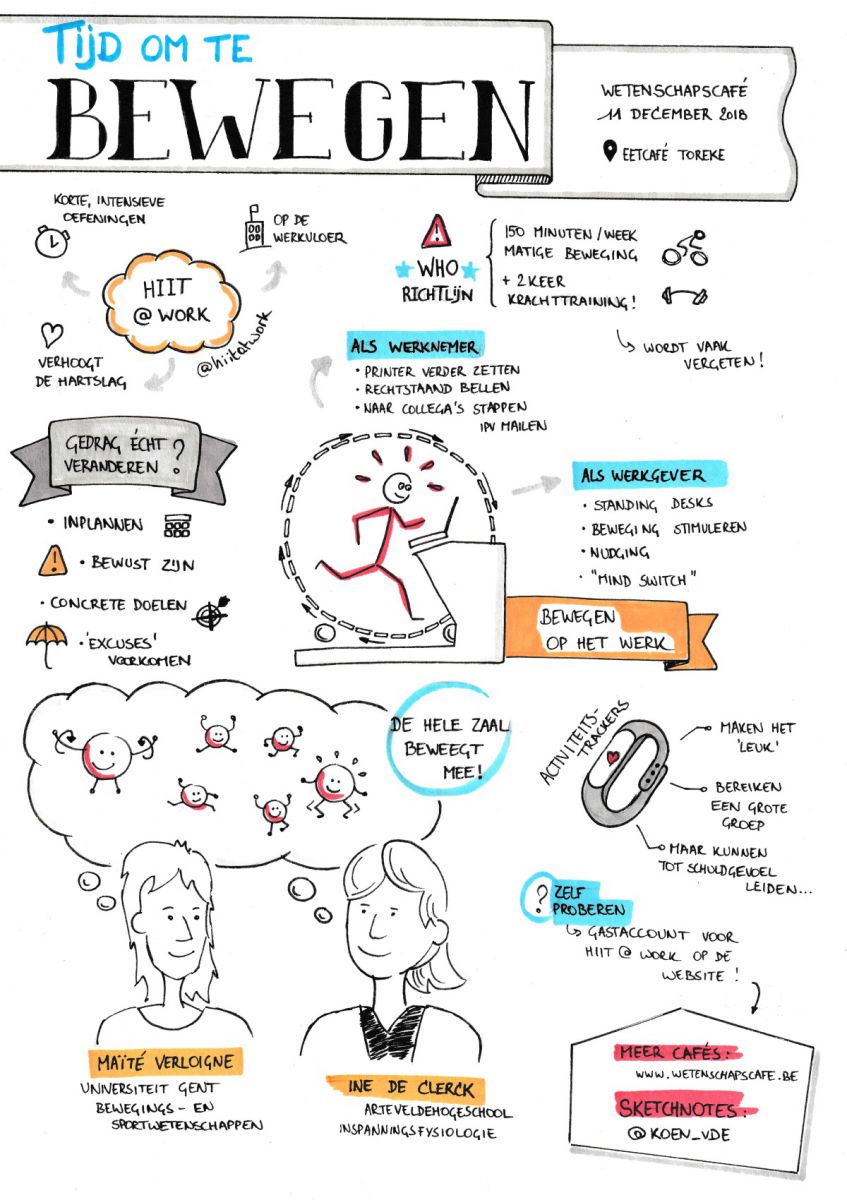 TIJD OM TE
BEWEGEN
WETENSCHAPSCAFÉ
11 DECEMBER 2018
EETCAFÉ TOREKE
KORTE, INTENSIEVE
OEFENINGEN
OP DE
WERKVLOER
HIIT
@ WORK
@hiitatwork
VERHOOGT
DE HARTSLAG
WHO
RICHTLIJN
150 MINUTEN/WEEK
MATIGE BEWEGING
+ 2 KEER
KRACHTTRAINING!
WORDT VAAK
VERGETEN!
ALS WERKNEMER
• PRINTER VERDER ZETTEN
• RECHTSTAAND BELLEN
• NAAR COLLEGA'S STAPPEN
IPV MAILEN
GEDRAG ÉCHT
VERANDEREN?
• INPLANNEN
• BEWUST ZIJN
• CONCRETE DOELEN
• 'EXCUSES'
VOORKOMEN
ALS WERKGEVER
• STANDING DESKS
• BEWEGING STIMULEREN
• NUDGING
• "MIND SWITCH"
BEWEGEN
OP HET WERK
DE HELE ZAAL
BEWEEGT
MEE!
ACTIVITEITS-
TRACKERS
MAKEN HET
'LEUK'
BEREIKEN
EEN GROTE
GROEP
MAAR KUNNEN
TOT SCHULDGEVOEL
LEIDEN...
? ZELF
PROBEREN
GASTACCOUNT VOOR
HIIT @ WORK OP DE
WEBSITE!
MAÏTÉ VERLOIGNE
UNIVERSITEIT GENT
BEWEGINGS- EN
SPORTWETENSCHAPPEN
INE DE CLERCK
ARTEVELDEHOGESCHOOL
INSPANNINGSFYSIOLOGIE
MEER CAFÉS:
WWW.WETENSCHAPSCAFE.BE
SKETCHNOTES:
@KOEN_VDE